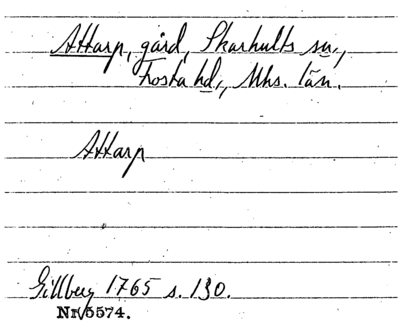 Attarp, gård, Skarhults sn.,
Frosta hd., Mhs. län.
Attarp
Gillberg 1765 s. 130.
Nr 5574.